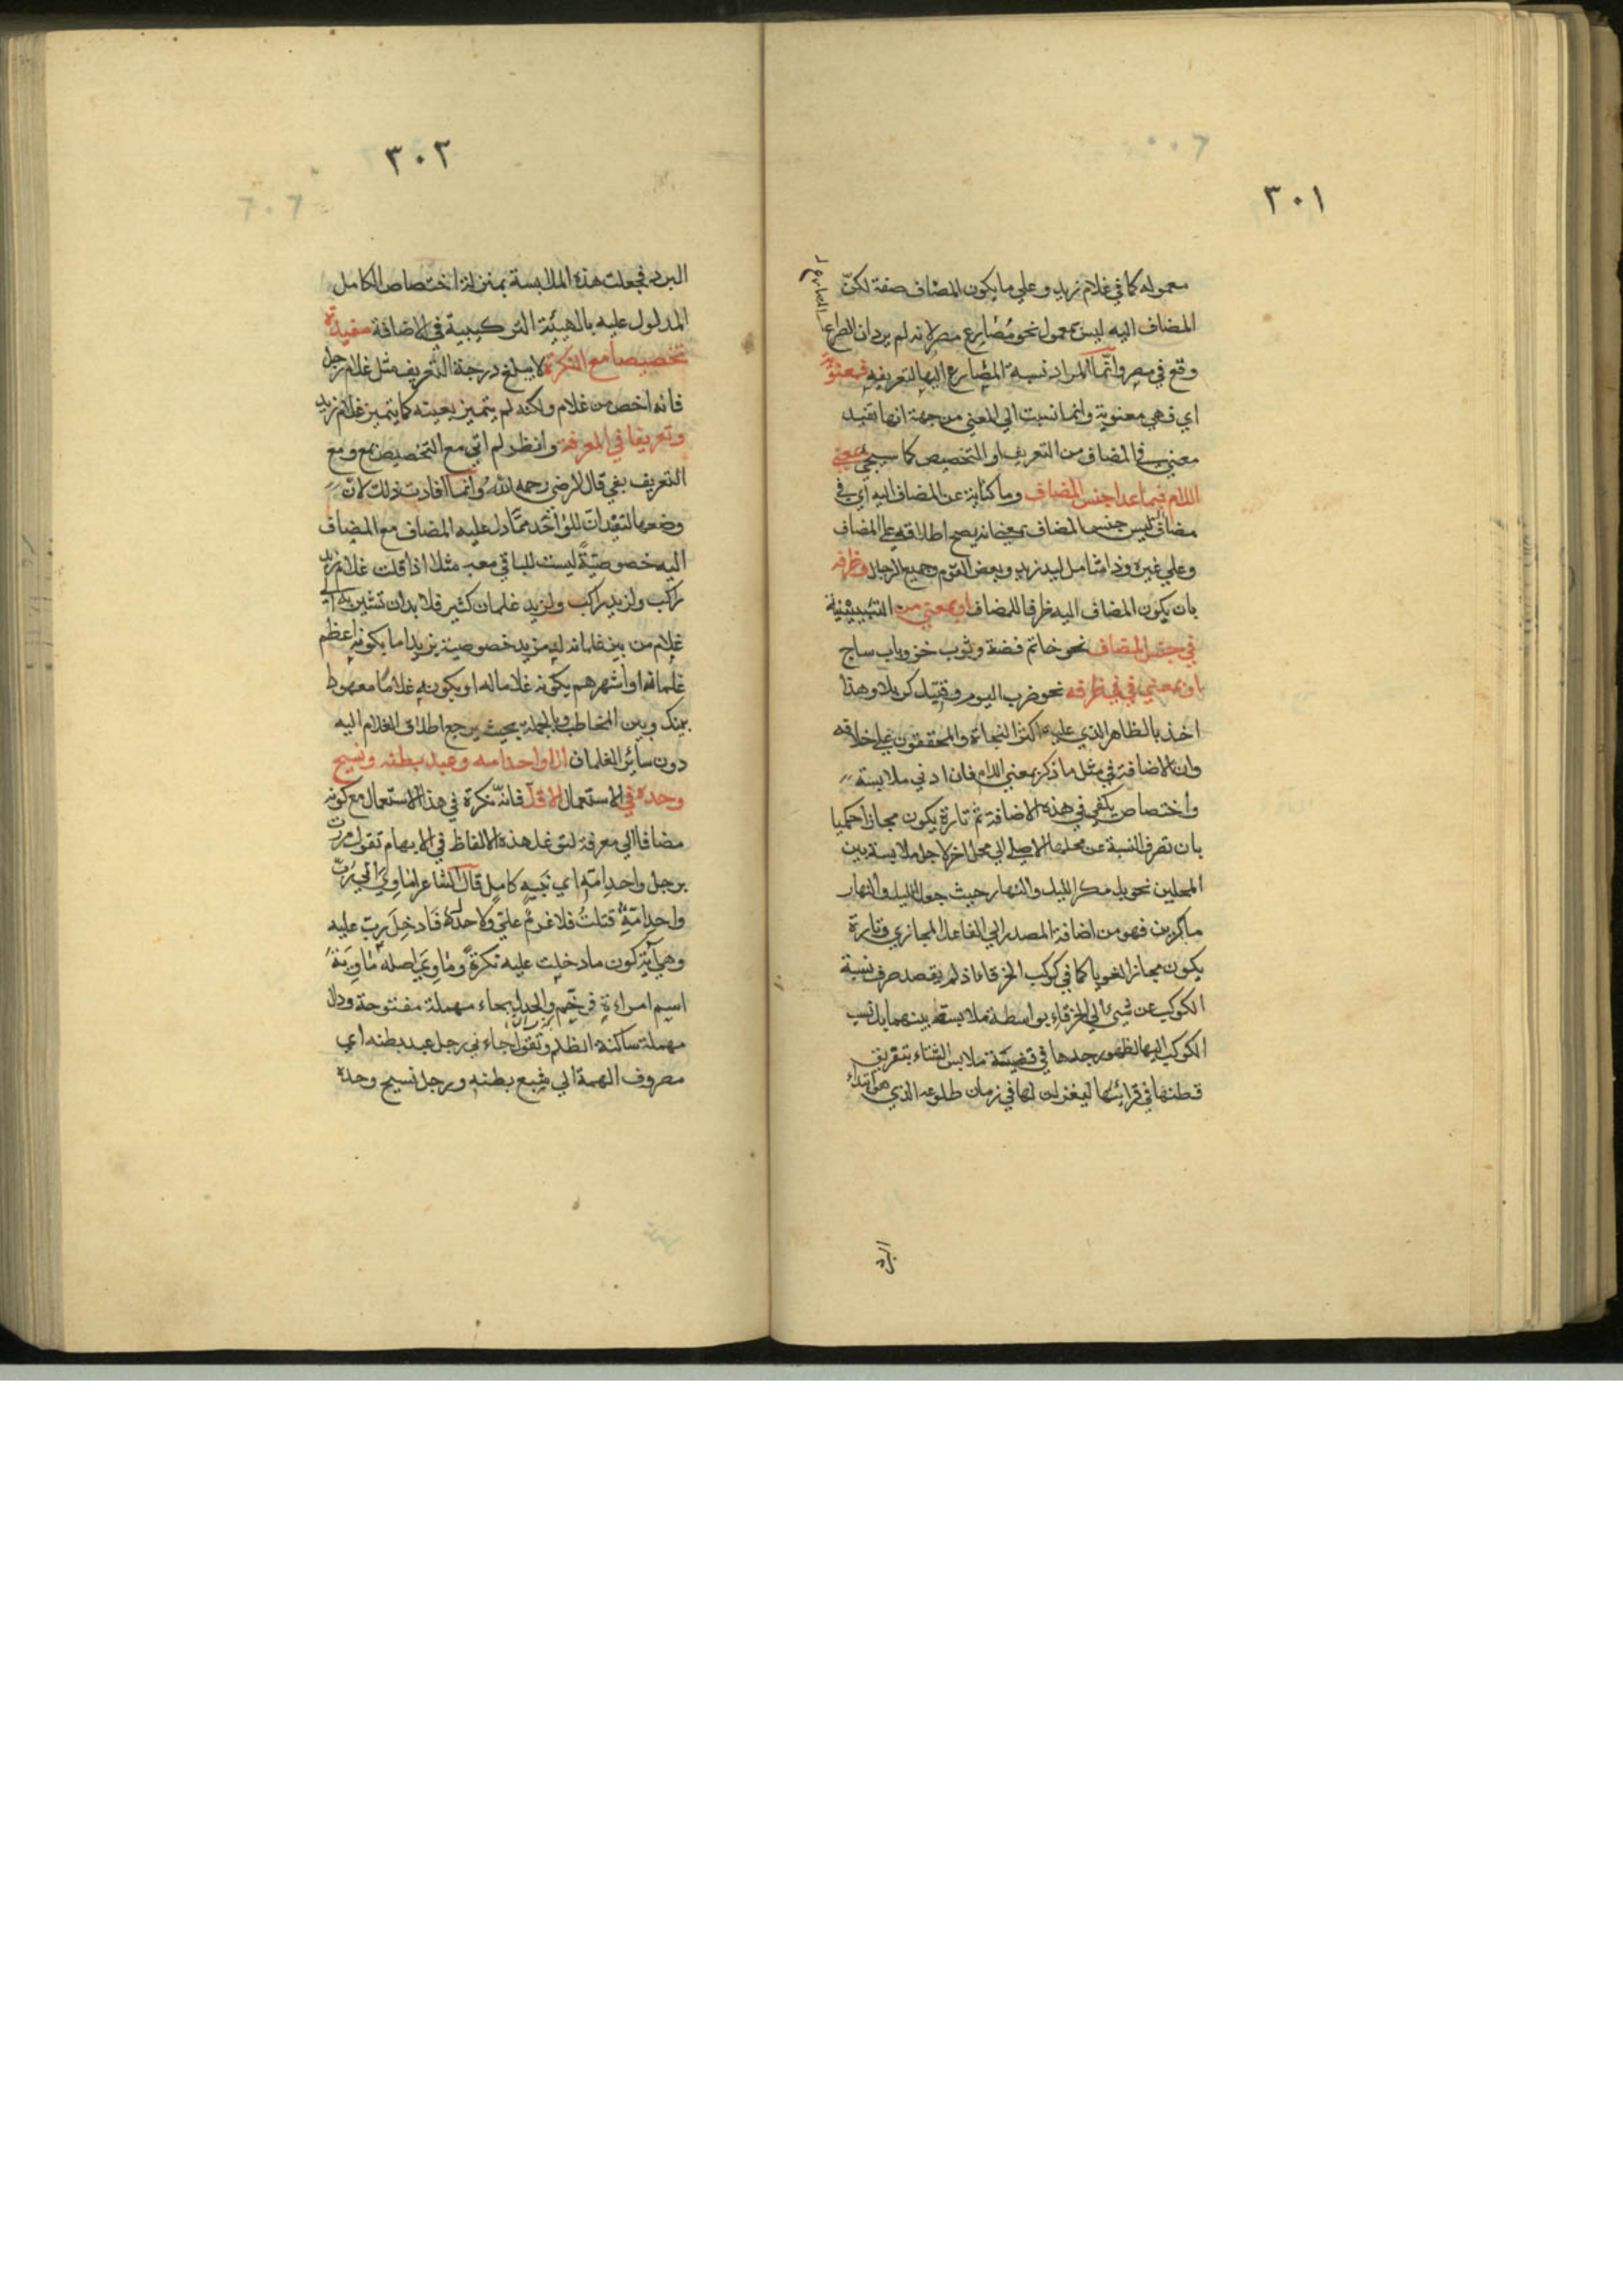 ٣٠١
معموله كما في غلام زيد وعلي ما يكون المضاف صفة لكنّ
المضاف اليه ليس بمعمول نحو مُصَارِع مصر لانه لم يرد ان الصراع
وقع في مصر وانّما المراد نسبة المصارع اليها لتعريفه فمعنويّة
اي فهي معنوية وانما نسبت الي المعني من جهة انها تفيد
معني في المضاف من التعريف او التخصيص كما سيجئ بمعني
اللام فيما عدا جنس المضاف وما كناية عن المضاف اليه اي في
مضاف ليس جنس المضاف بمعني انه يصح اطلاقه علي المضاف
وعلي غيره وذا شامل ليد زيد وبعض القوم وجميع الرجال وظرفه
بان يكون المضاف اليه ظرفا للمضاف او بمعني من التبيينية
في جنس المضاف نحو خاتم فضة وثوب خز وباب ساج
او بمعني في في ظرفه نحو ضرب اليوم وقتيل كربلا وهذا
اخذ بالظاهر الذي عليه اكثر النحاة والمحققون علي خلافه
وان الاضافة في مثل ما ذكر بمعني اللام فان ادني ملابسة
واختصاص يكفي في هذه الاضافة ثم تارة يكون مجازا حكميا
بان تصرف النسبة عن محلها الاصلي الي محل اخر لاجل ملابسة بين
المحلين نحو بل مكر الليل والنهار حيث جعل الليل والنهار
ماكرين فهو من اضافة المصدر الي الفاعل المجازي وتارة
يكون مجازا لغويا كما في كوكب الخرقاء اذ لم يقصد صرف نسبة
الكوكب عن شيئ الي الخرقاء بواسطة ملابسة بينهما بل نسب
الكوكب اليها لظهور جدها في ملابس الشتاء بتفريق
قطنها في قرائبها ليغزلن لها في زمان طلوعه الذي هو ابتداء
البرد
٣٠٢
البرد فجعلت هذه الملابسة بمنزلة الاختصاص الكامل
المدلول عليه بالهيئة التركيبية في الاضافة مفيدة
تخصيصا مع النكرة لا يبلغ درجة التعريف مثل غلام رجل
فانه اخص من غلام ولكنه لم يتميز بعينه كما يتميز غلام زيد
وتعريفا في المعرفة وانظر لم اتي مع التخصيص بمع ومع
التعريف بفي قال الرضي رحمه الله وانّما افادت ذلك لانّ
وضعها لتفيد ان لواحد ممّا دل عليه المضاف مع المضاف
اليه خصوصيّةً ليست للباقي معه مثلا اذا قلت غلام زيد
راكب ولزيد غلمان كثير فلا بد ان تشير به الي
غلام من بين غلمانه له مزيد خصوصية بزيد اما بكونه اعظم
غلمانه او اشهرهم بكونه غلاما له او بكونه غلامًا معهودا
بينك وبين المخاطب وبالجملة بحيث يرجع اطلاق الغلام اليه
دون سائر الغلمان الا واحد امه وعبد بطنه ونسيج
وحده في الاستعمال الاقل فانّه نكرة في هذا الاستعمال مع كونه
مضافا الي معرفة لتوغل هذه الالفاظ في الابهام تقول مررت
برجل واحد امّه اي نبيه كامل قال الشاعر اماويّ اني ربّ
واحد امّه قتلتُ فلا غرمٌ علَيّ ولا حدل فادخل ربّ عليه
وهي آية كون ما دخلت عليه نكرةً وماويّ اصله ماويّة
اسم امراءة فرخّم والحدل بحاء مهملة مفتوحة ودال
مهملة ساكنة الظلم وتقول جاءني رجل عبد بطنه اي
مصروف الهمة الي شبع بطنه ورجل نسيج وحده